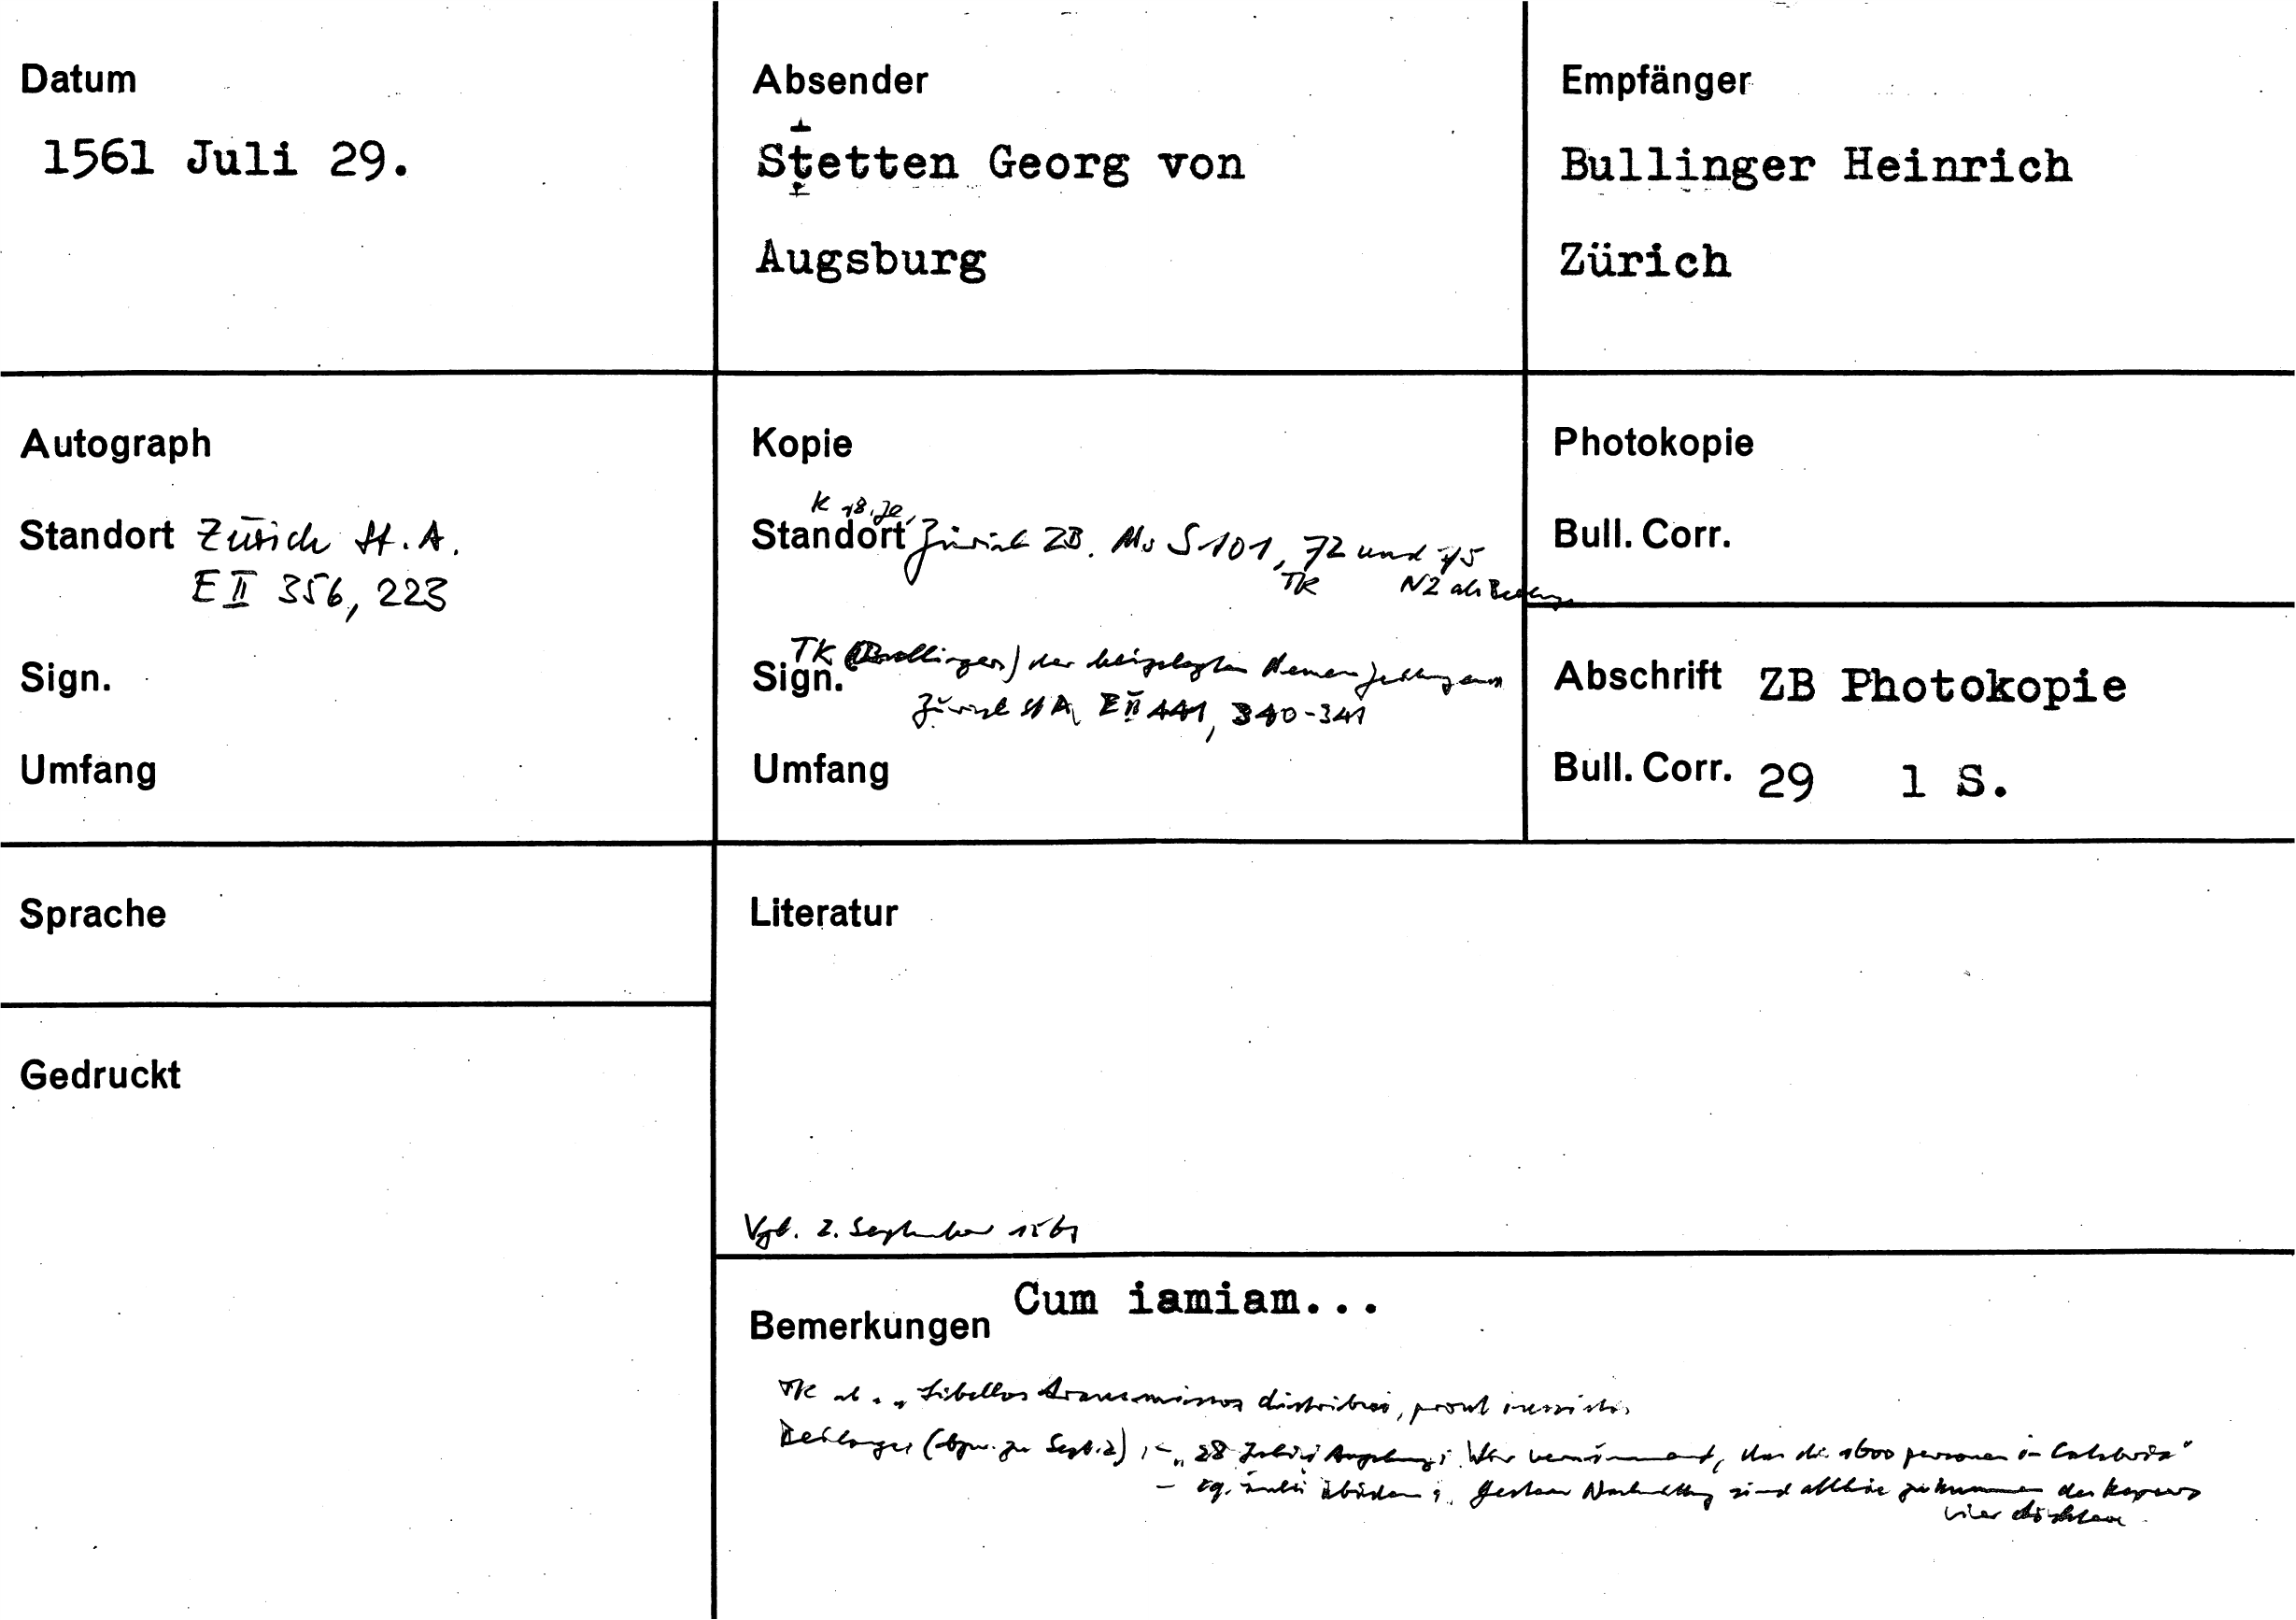 Datum
1561 Juli 29.
Absender
Stetten Georg von
Augsburg
Empfänger
Bullinger Heinrich
Zürich
Autograph
Standort Zürich St.A.
E II 356, 223
Sign.
Umfang
Kopie
K 18. Jh.
Standort Zürich ZB. Ms S 101, 72 und 75
TK N2 als Beilage
TK (Bullinger) der beigelegten Neuen Zeitungen
Sign.
Zürich StA, E II 441, 340-341
Umfang
Photokopie
Bull. Corr.
Abschrift ZB Photokopie
Bull. Corr. 29 1 S.
Sprache
Literatur
Vgl. 2. September 1561
Gedruckt
Cum iamiam...
Bemerkungen
TK ab: "Libellos transmissos distribui, prout
Beilagen (bzw. zu Sept. 2): - "28 Augsburg: Wir, das die 1600 personen in Calabria"
- 29. ibidem: Gestern Nachmittag sind allhie des
vier döchtere